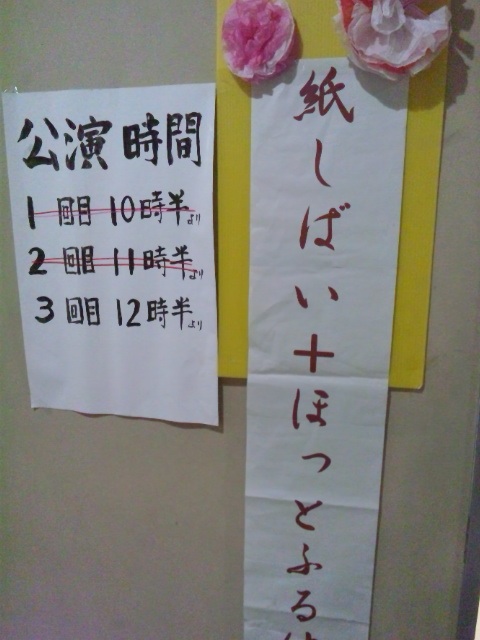 公演時間
1回目 10時半より
2回目 11時半より
3回目 12時半より
紙しばい+ほっとふる